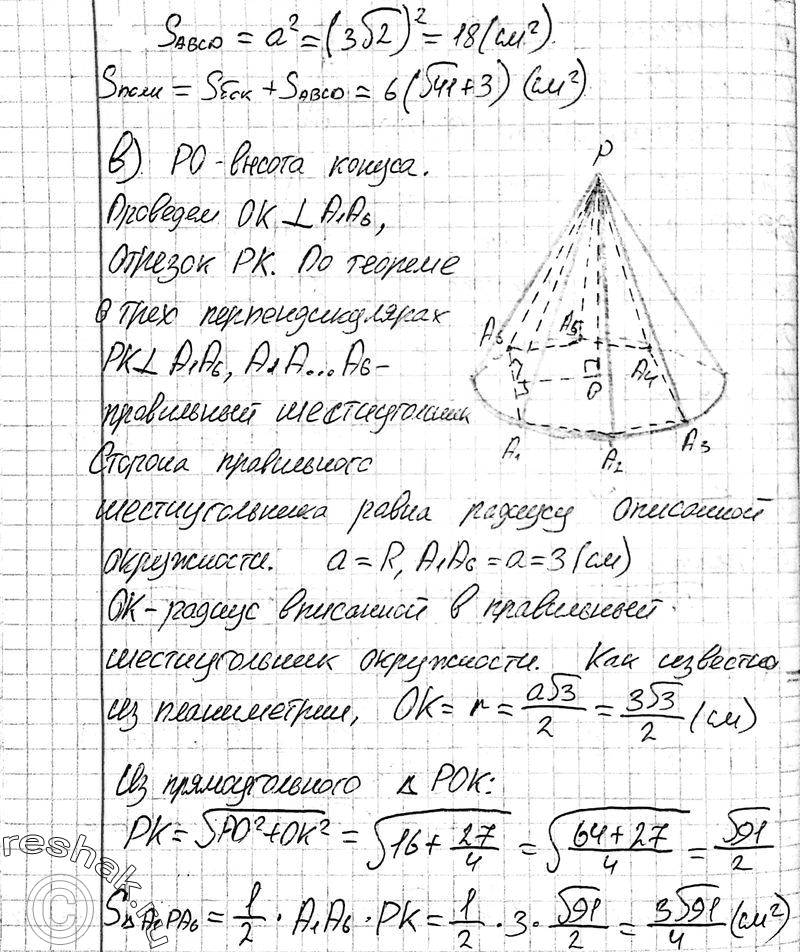 S_ABCD = a² = (3√2)² = 18 (см²).
S_полн = S_бок + S_ABCD = 6(√41+3) (см²)
в) PO - высота конуса.
Проведем OK ⊥ A₁A₆,
Отрезок PK. По теореме
о трех перпендикулярах
PK ⊥ A₁A₆, A₁A...A₆ -
правильный шестиугольник
Сторона правильного
шестиугольника равна радиусу описанной
окружности. a = R, A₁A₆ = a = 3 (см)
OK - радиус вписанной в правильный
шестиугольник окружности. Как известно
из планиметрии, OK = r = a√3/2 = 3√3/2 (см)
Из прямоугольного △ POK:
PK = √(PO²+OK²) = √(16 + 27/4) = √((64+27)/4) = √91/2
S_△A₁PA₆ = 1/2 · A₁A₆ · PK = 1/2 · 3 · √91/2 = 3√91/4 (см²)
P
A₆
A₅
A₄
O
A₁
A₂
A₃
reshak.ru
©